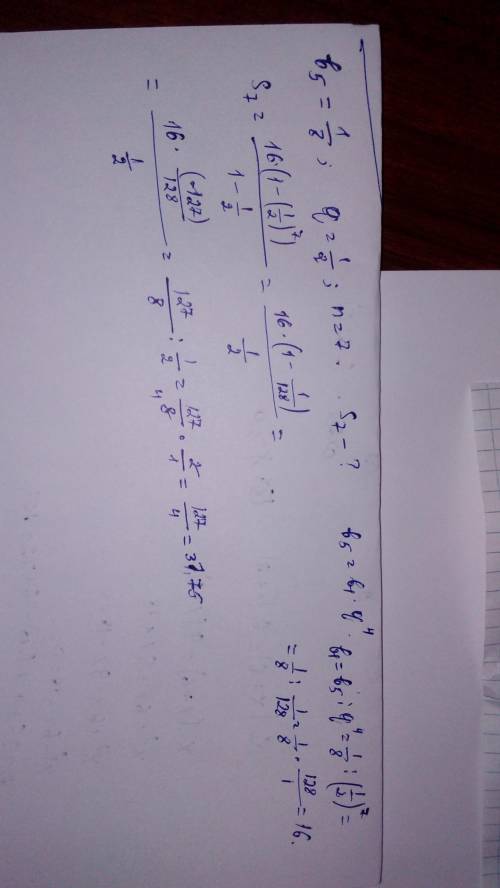 b₅ = 1/8 ; q = 1/2 ; n = 7 . S₇ – ? b₅ = b₁ · q⁴ · b₁ = b₅ : q⁴ = 1/8 : (1/2)⁷ =
= 1/8 : 1/128 = 1/8 · 128/1 = 16.
S₇ = 16·(1 – (1/2)⁷) / (1 – 1/2) = 16·(1 – 1/128) / (1/2) =
= 16 · (127)/128 / (1/2) = 127/8 : 1/2 = 127/8 · 2/1 = 127/4 = 31,75